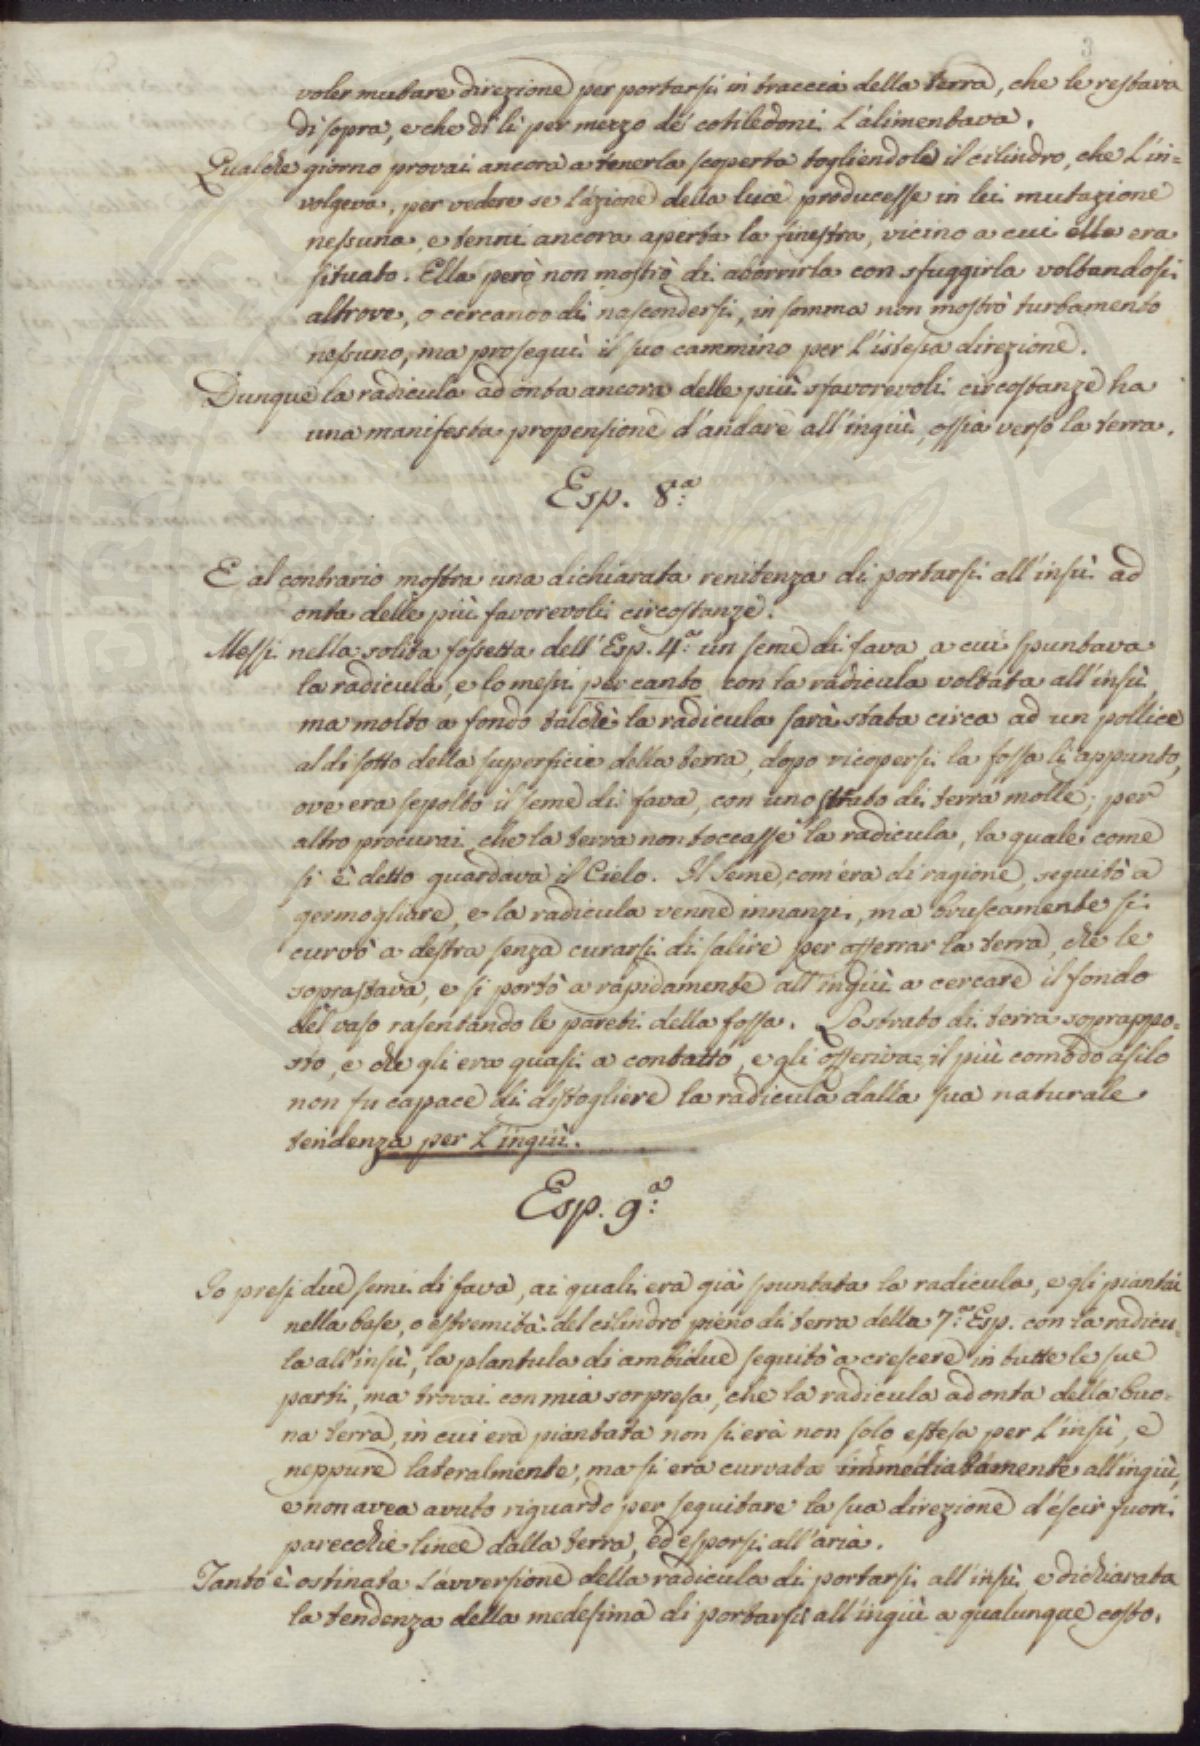 3
voler mutare direzione per portarsi in traccia della terra, che le restava
di sopra, e che di lì per mezzo de' cotiledoni l'alimentava.
Qualche giorno provai ancora a tenerla scoperta togliendole il cilindro, che l'in=
volgeva, per vedere se l'azione della luce producesse in lei mutazione
nessuna, e tenni ancora aperta la finestra, vicino a cui ella era
situata. Ella però non mostrò di aborrirla con sfuggirla voltandosi
altrove, o cercando di nascondersi, in somma non mostrò turbamento
nessuno, ma proseguì il suo cammino per l'istessa direzione.
Dunque la radicula ad onta ancora delle più sfavorevoli circostanze ha
una manifesta propensione d'andare all'ingiù, ossia verso la terra.
Esp. 8.ª
E al contrario mostra una dichiarata renitenza di portarsi all'insù ad
onta delle più favorevoli circostanze.
Messi nella solita fossetta dell'Esp. 4.ª un seme di fava, a cui spuntava
la radicula, e lo messi per canto con la radicula voltata all'insù,
ma molto a fondo talchè la radicula sarà stata circa ad un pollice
al di sotto della superficie della terra, dopo ricopersi la fossa lì appunto,
ove era sepolto il seme di fava, con uno strato di terra molle; per
altro procurai, che la terra non toccasse la radicula, la quale come
si è detto guardava il Cielo. Il seme, com'era di ragione, seguitò a
germogliare, e la radicula venne innanzi, ma bruscamente si
curvò a destra senza curarsi di salire per afferrar la terra, che le
soprastava, e si portò a rapidamente all'ingiù a cercare il fondo
del vaso rasentando le pareti della fossa. Lo strato di terra soprappo=
sto, e che gli era quasi a contatto, e gli offeriva il più comodo asilo
non fu capace di distogliere la radicula dalla sua naturale
tendenza per l'ingiù.
Esp. 9.ª
Io presi due semi di fava, ai quali era già spuntata la radicula, e gli piantai
nella base, o estremità del cilindro pieno di terra della 7.ª Esp. con la radicu=
la all'insù, la plantula di ambidue seguitò a crescere in tutte le sue
parti, ma trovai con mia sorpresa, che la radicula ad onta della buo=
na terra, in cui era piantata non si era non solo estesa per l'insù, e
neppure lateralmente, ma si era curvata immediatamente all'ingiù,
e non avea avuto riguardo per seguitare la sua direzione d'escir fuori
parecchie linee dalla terra, ed esporsi all'aria.
Tanto è ostinata l'avversione della radicula di portarsi all'insù, e dichiarata
la tendenza della medesima di portarsi all'ingiù a qualunque costo.